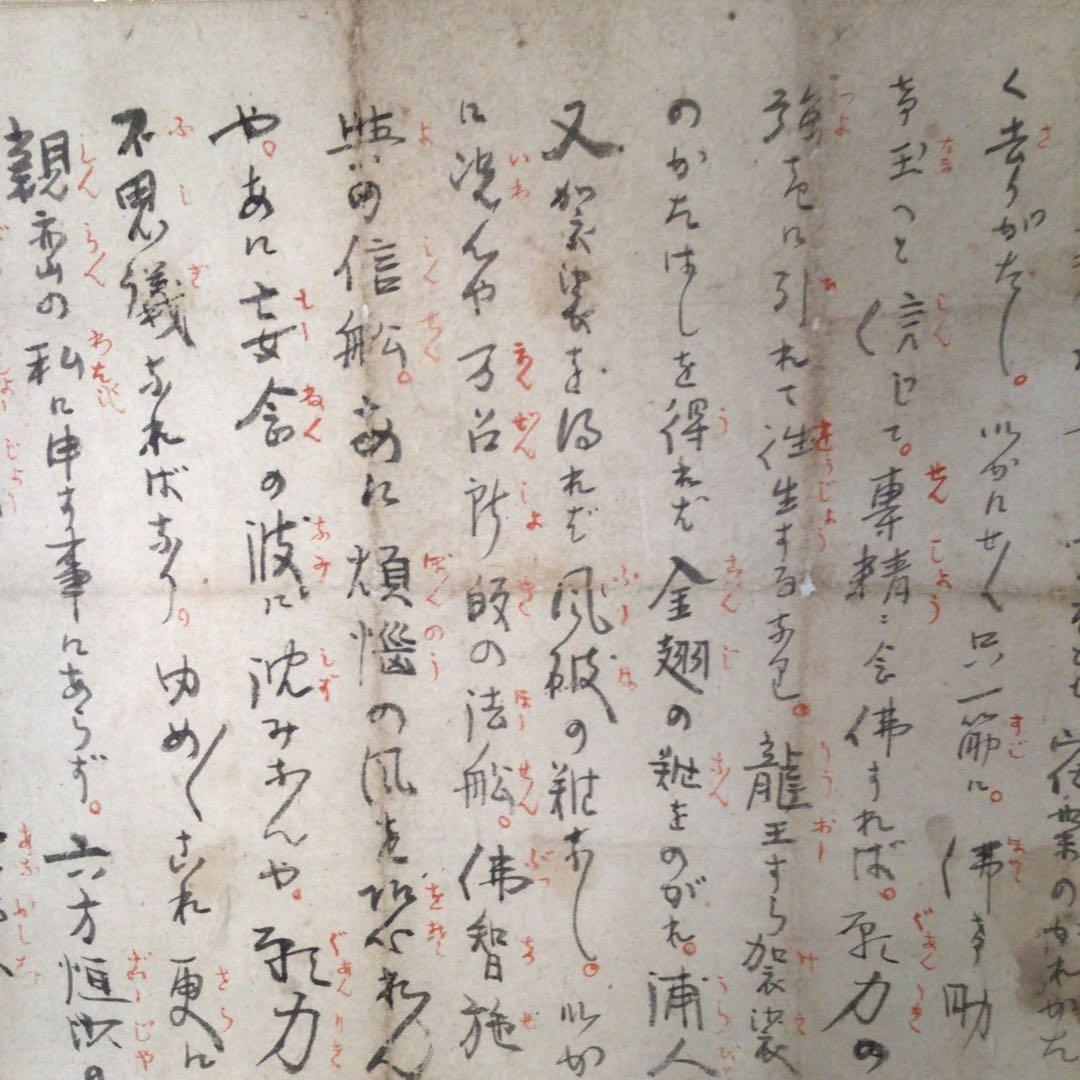 宿業のがれがた
く去りがたし。いかにせん只一筋に。佛た助
け玉へと信じて。專精に念佛すれば。願力の
強きに引れて往生するなり。龍王すら袈裟
のかたはしを得れば金翅の難をのがれ。浦人
又袈裟を得れば風破の難なし。いか
に况んや万善所帰の法船。佛智施
與の信船。あに煩惱の風を恐れん
や。あに妄念の波に沈みなんや。願力
不思議なればなり。ゆめ〳〵これ更に
親鸞の私に申す事にあらず。六方恒沙の